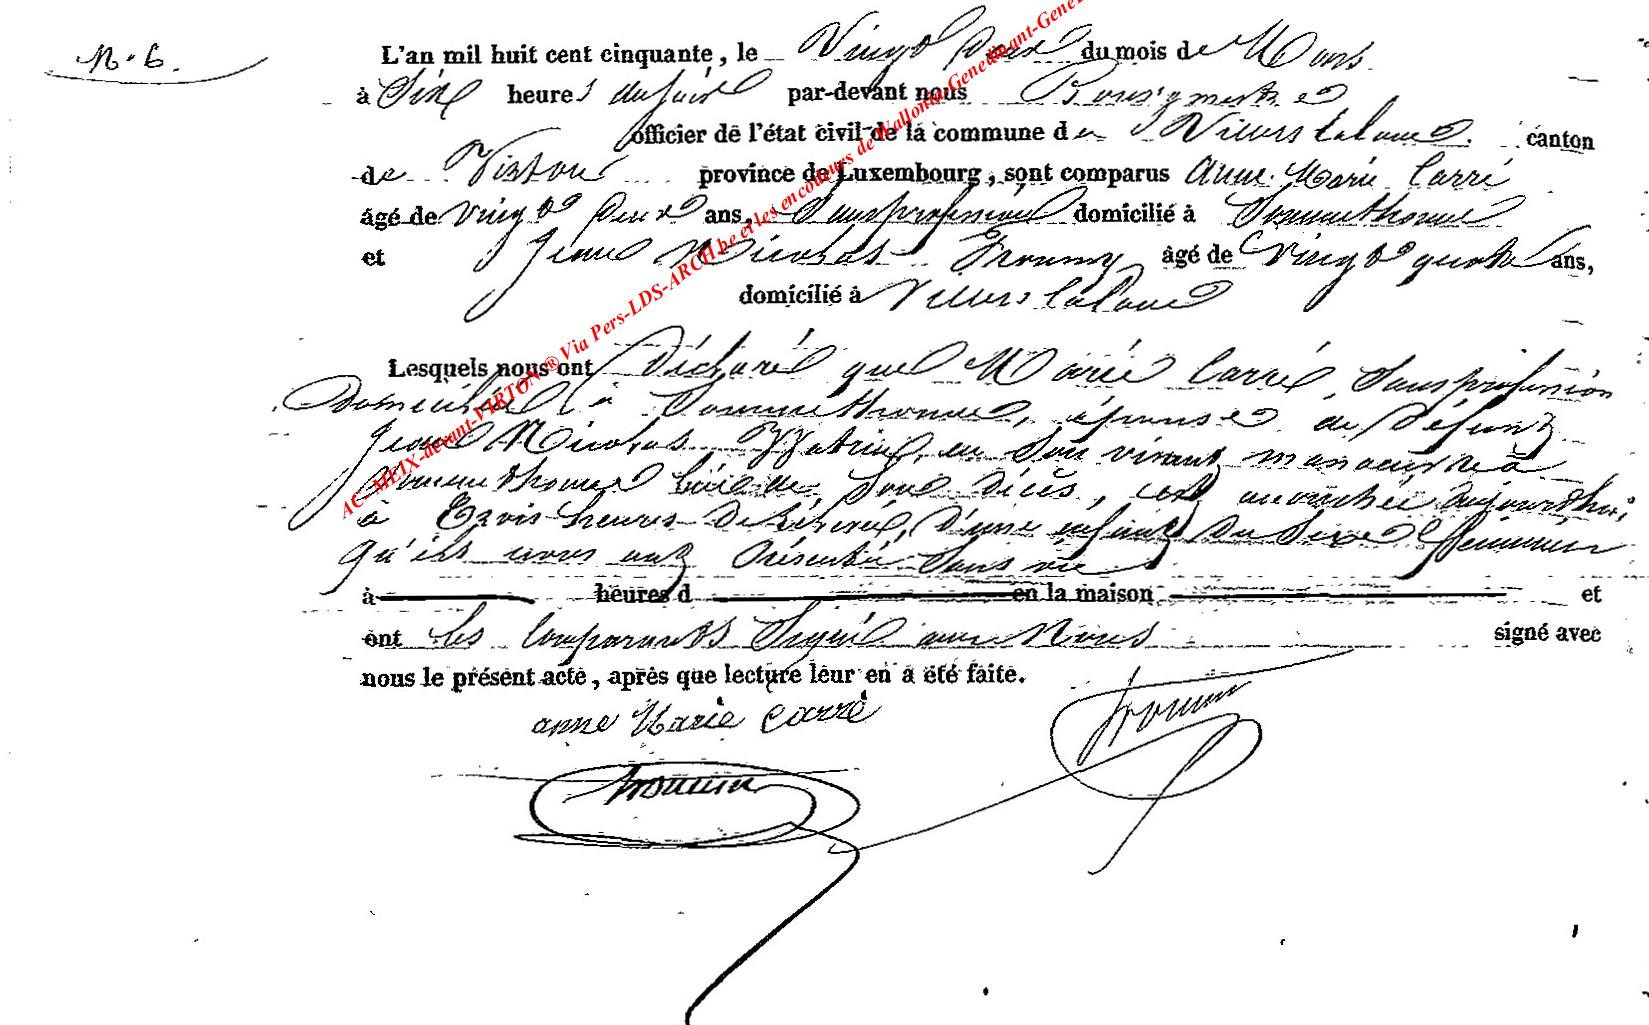 N. 6.
L'an mil huit cent cinquante, le Vingt Deux du mois de Mars
à Six heures du soir par-devant nous Bourgmestre
officier de l'état civil de la commune de Villers la loue canton
de Virton province de Luxembourg, sont comparus Anne Marie Carré
âgé de vingt Deux ans, Sans profession domicilié à Sommethonne
et Jean Nicolas âgé de Vingt quatre ans,
domicilié à Villers la loue
Lesquels nous ont Déclaré que Marie Carré, Sans profession
Domiciliée à Sommethonne, épouse de Défunt
Jean Nicolas Watrin, en Son vivant manoeuvre à
Sommethonne Son Décès, est accouchée aujourd'hui
à Trois heures De relevée, D'une enfant Du Sexe féminin
qu'ils nous ont Présenté Sans vie
à heures d en la maison et
ont les Comparants Signé avec Nous signé avec
nous le présent acte, après que lecture leur en a été faite.
anne Marie Carré
AC-MEIX-devant-VIRTON ® Via Pers-LDS-ARCH.be et les encodeurs de Wallonia-Genedinant-Gene